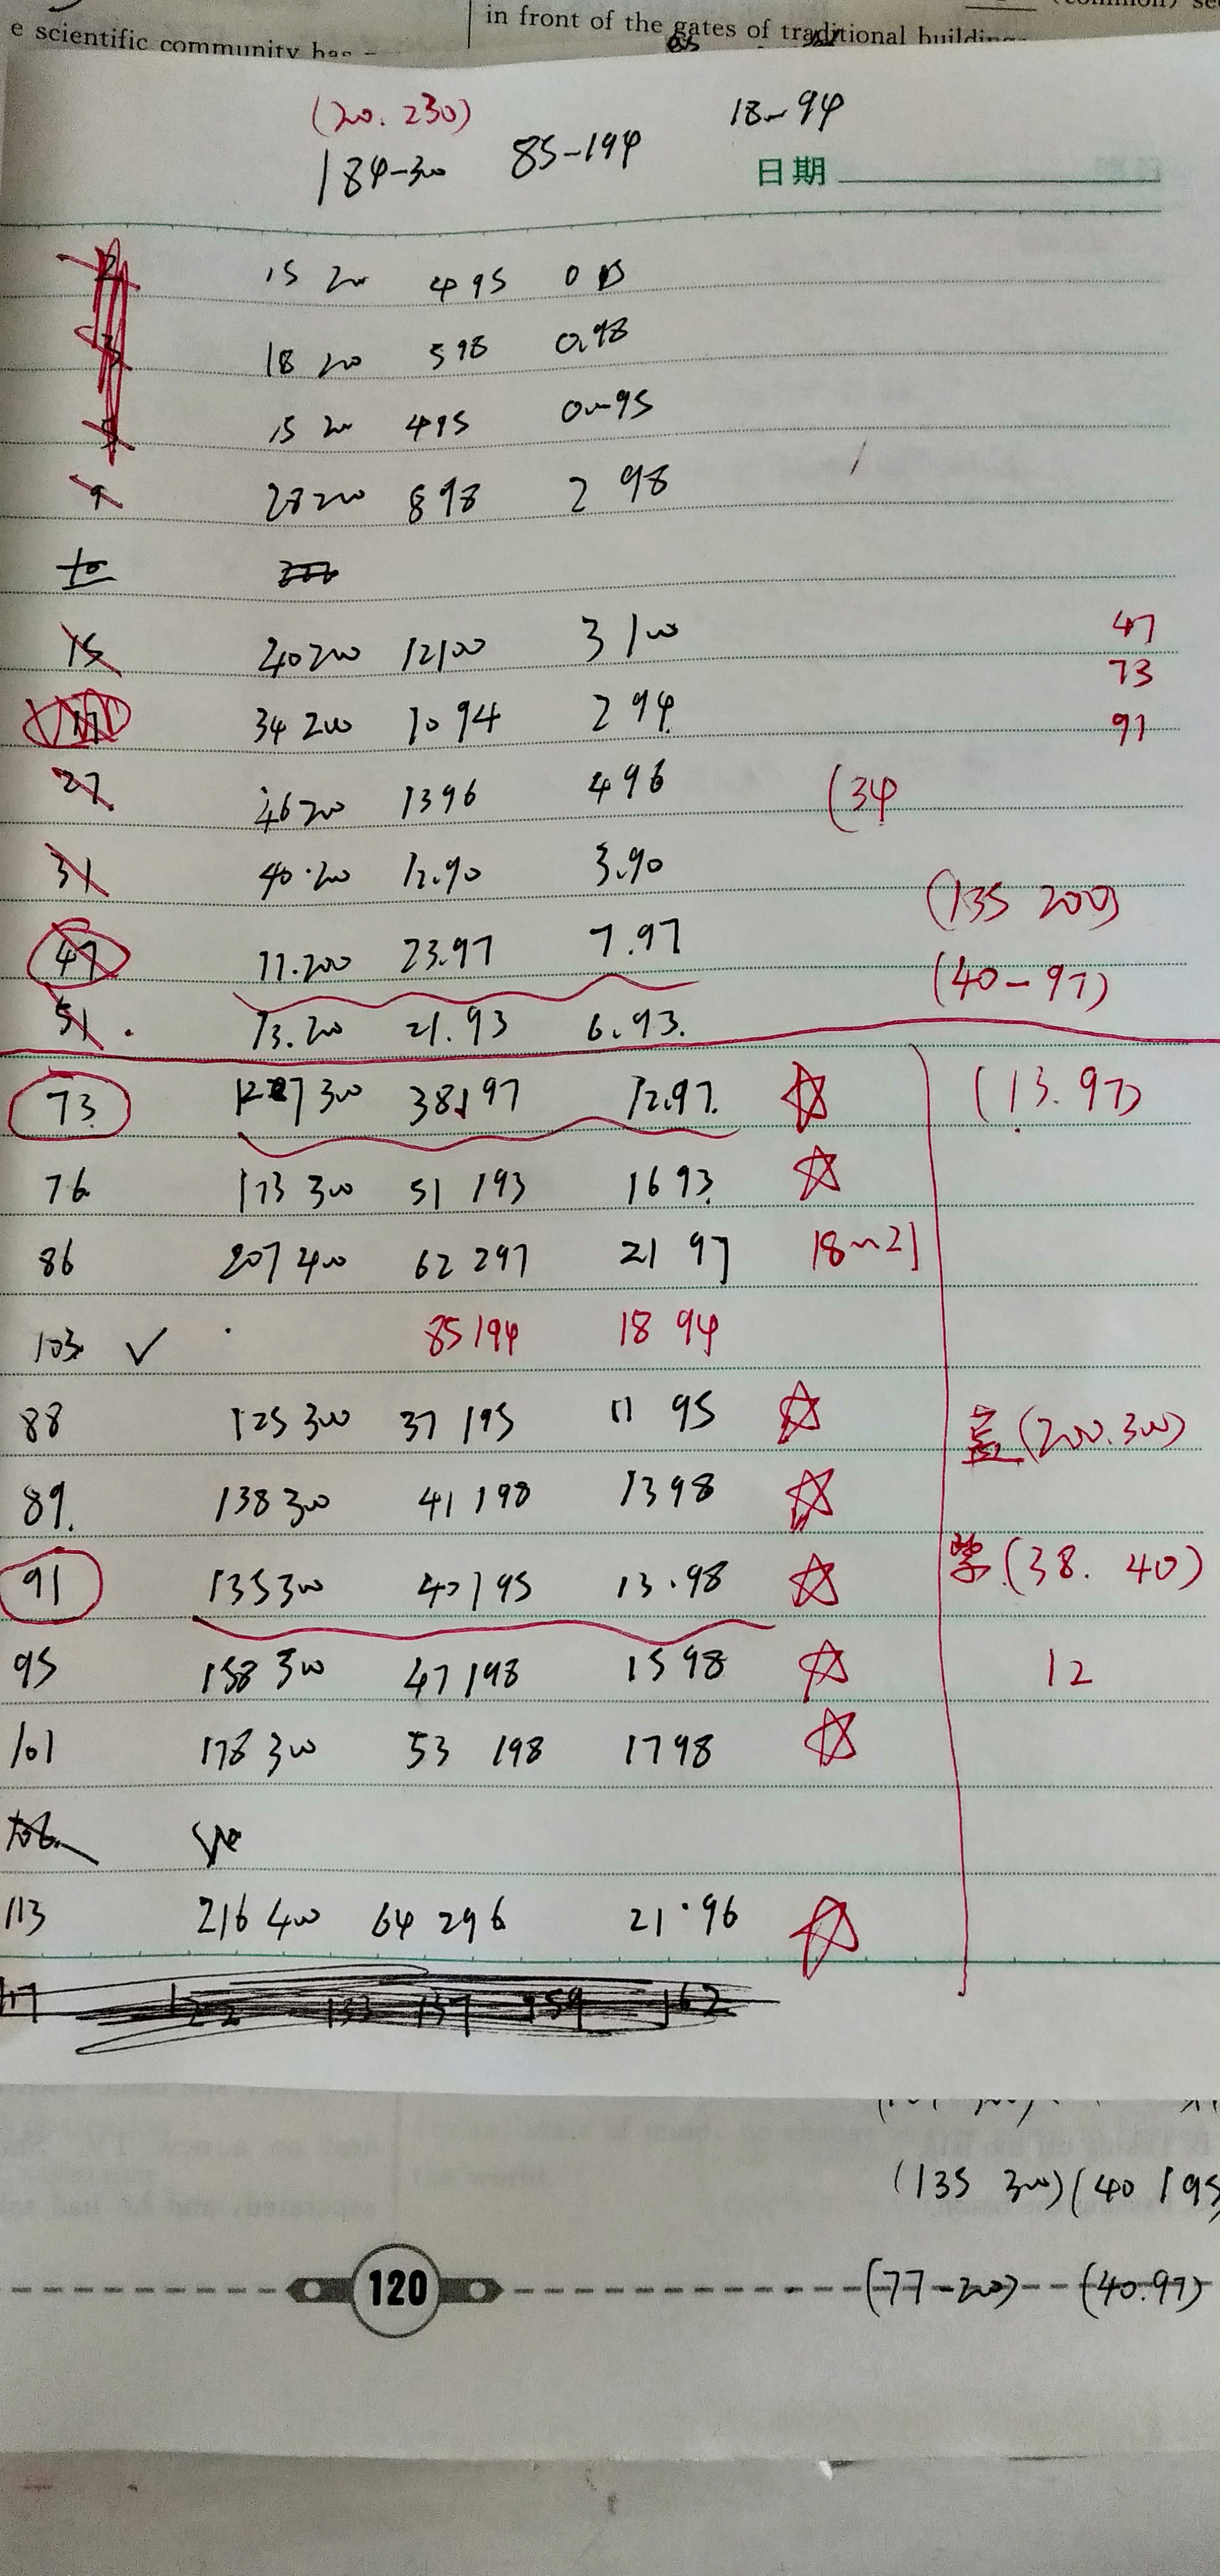 in front of the gates of traditional
e scientific community has
(20. 230)
184-300 85-194 18-94
日期
15 200 4 95 0
18 200 5 98 0.98
15 200 4 95 0-95
9 28 200 8 98 2 98
15 40 200 12 100 3 100
47
73
17 34 200 10 94 2 94
91
27 46 200 13 96 4 96
(34
31 40.200 12.90 3.90
(135 200)
47 77.200 23.97 7.97
(40-97)
51 73.200 21.93 6.93.
73 127 300 38 197 12.97. ☆ (13.97)
76 173 300 51 193 16 93 ☆
86 207 400 62 297 21 97 18~21
103 ✓ 85 194 18 94
88 125 300 37 195 11 95 ☆
(200.300)
89. 138 300 41 198 13 98 ☆
(38. 40)
91 135 300 40 195 13.98 ☆
95 158 300 47 198 15 98 ☆ 12
101 178 300 53 198 17 98 ☆
113 216 400 64 296 21.96 ☆
(135 300)(40 195
120
(77-200) (40.97)